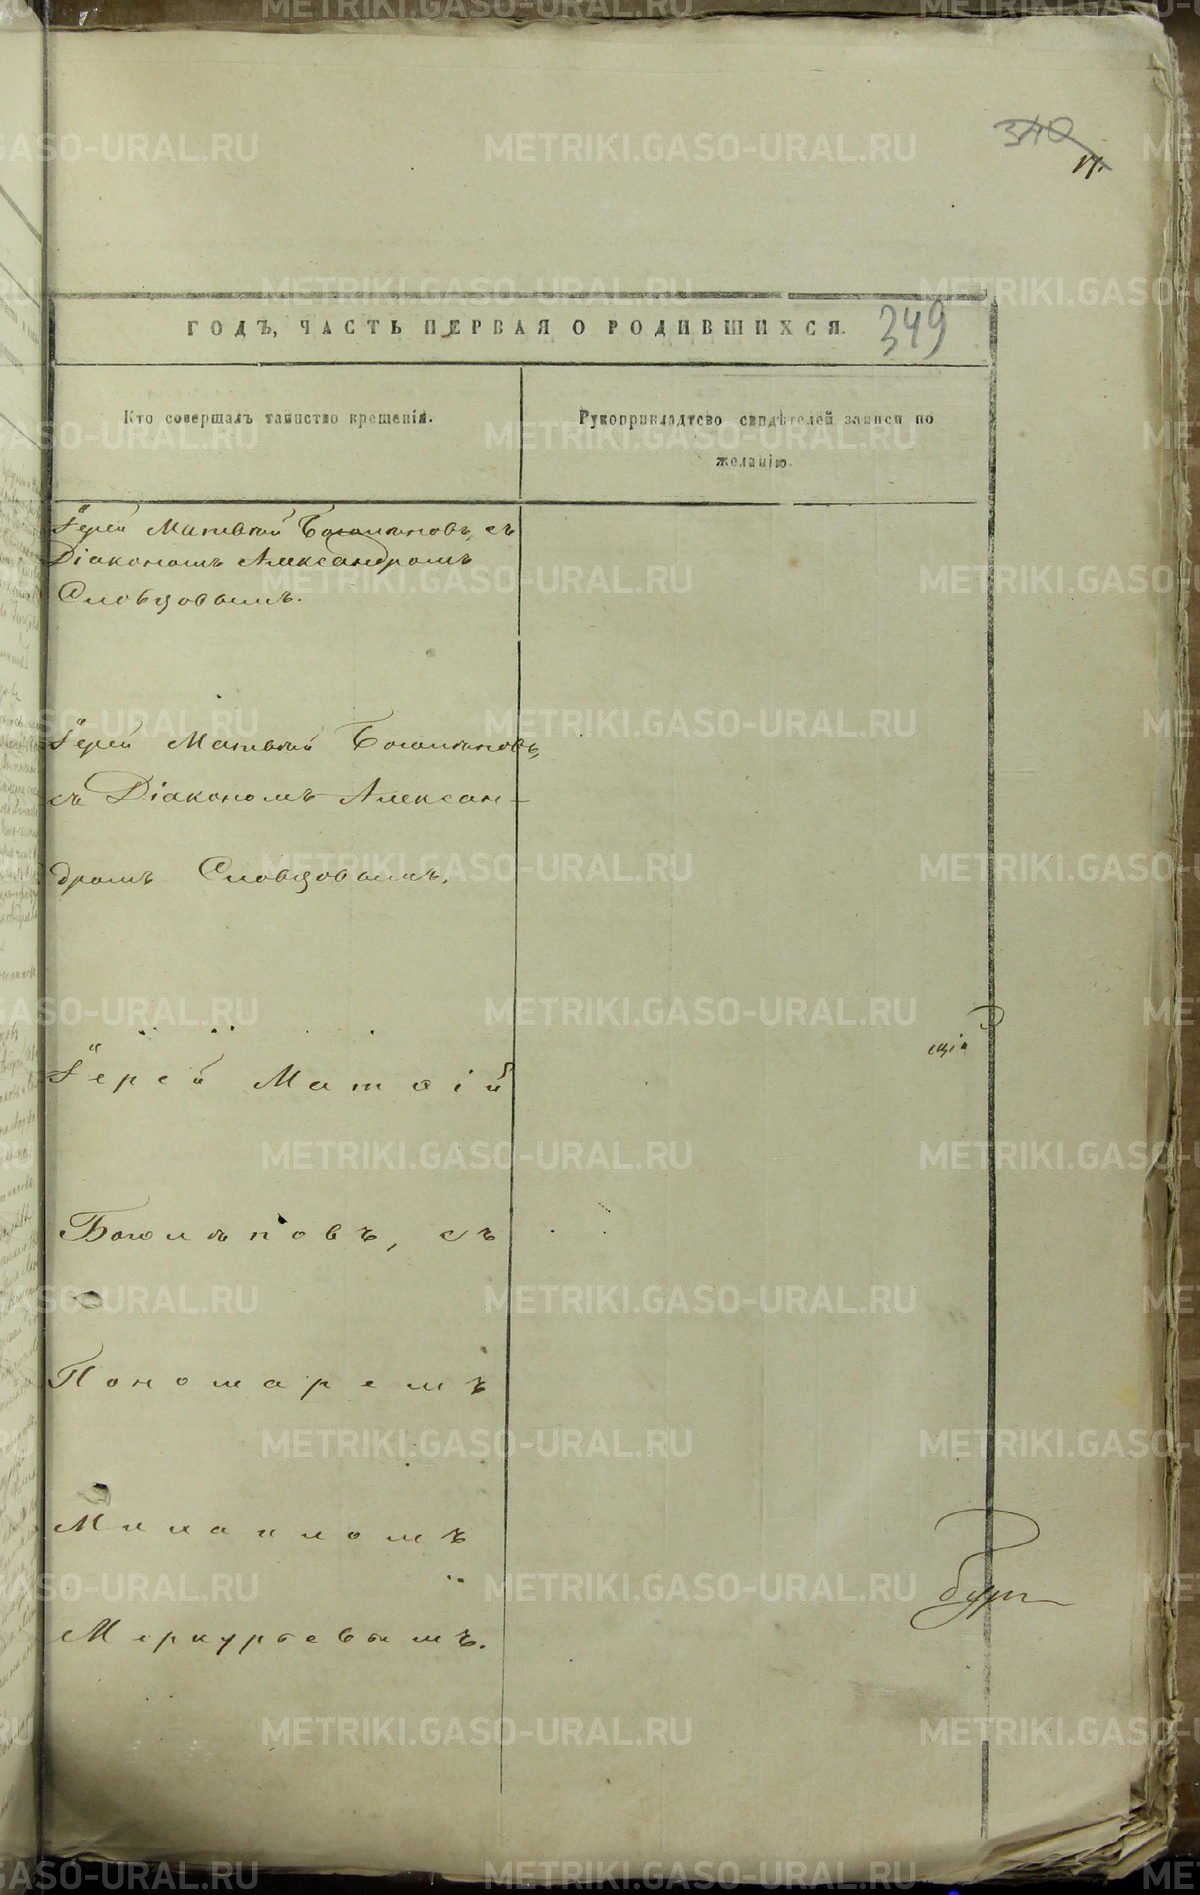 340
17.
ГОДЪ, ЧАСТЬ ПЕРВАЯ О РОДИВШИХСЯ.
349
Кто совершалъ таинство крещенія.
Рукоприкладтсво свидѣтелей записи по
желанію.
Іерей Матвѣй Боголѣповъ, съ
Діакономъ Александромъ
Словцовымъ.
Іерей Матвѣй Боголѣповъ,
съ Діакономъ Алексан-
дромъ Словцовымъ.
Іерей Матѳій
Боголѣповъ, съ
Пономаремъ
Михаиломъ
Меркурьевымъ.
METRIKI.GASO-URAL.RU